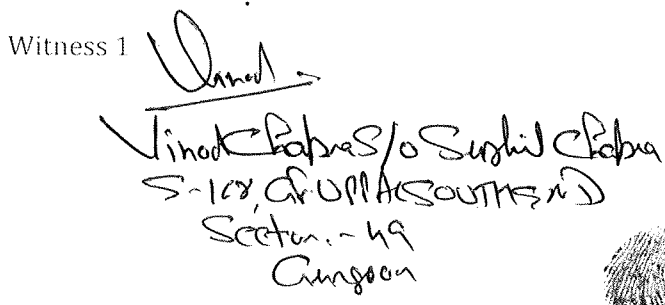 Witness 1 Vinod
Vinod Chabra S/o Sushil Chabra
S-108, GF UPPAL SOUTHEND
Sector - 49
Gurgaon